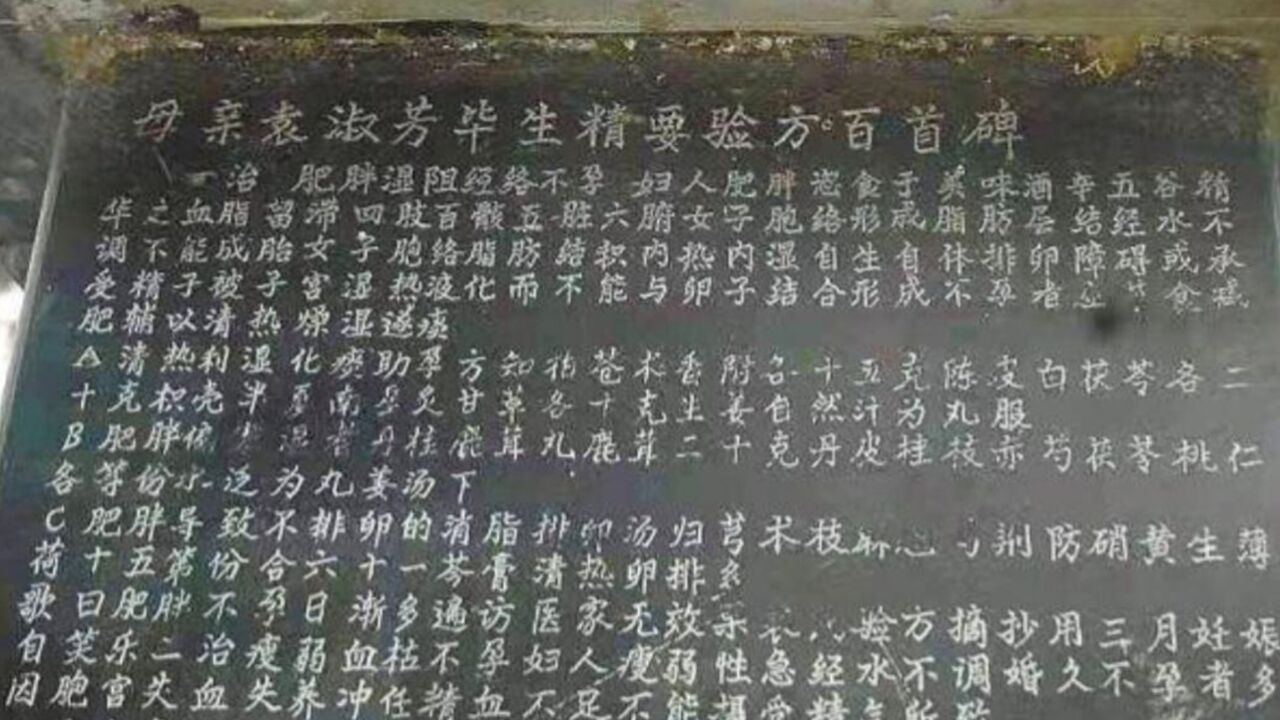 母亲袁淑芳毕生精要验方百首碑
一治 肥胖湿阻经络不孕 妇人肥胖恣食于美味酒辛五谷精
华之血脂留滞四肢百骸五脏六腑女子胞络形成脂肪层结经水不
调不能成胎女子胞络脂肪结积内热内湿自生自体排卵障碍或承
受精子被子宫湿热液化而不能与卵子结合形成不孕者 食
肥辅以清热燥湿遂瘥
A清热利湿化痰助孕方知柏苍术香附各十五克陈皮白茯苓各二
十克枳壳半夏南星炙甘草各十克生姜自然汁为丸服
B肥胖 丹桂鹿茸丸鹿茸二十克丹皮桂枝赤芍茯苓桃仁
各等份水泛为丸姜汤下
C肥胖导致不排卵的消脂排卵汤归芎术枝 荆防硝黄生薄
荷十五第份合六十一芩膏清热卵排
歌曰肥胖不孕日渐多遍访医家无效 验方摘抄用三月妊娠
自笑乐二治瘦弱血枯不孕妇人瘦弱性急经水不调婚久不孕者多
因胞宫 血失养冲任精血不足不能摄受精